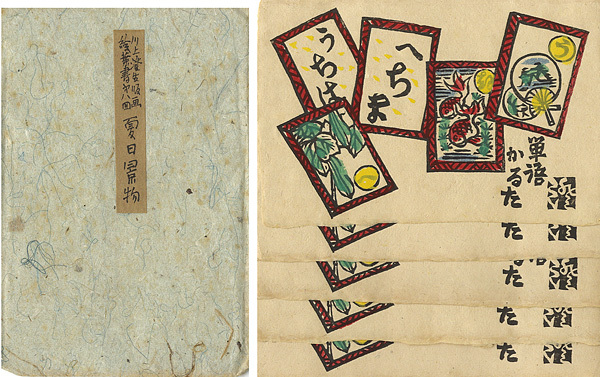 川上澄生版画
絵葉書第八回
夏日風物
うちは
へちま
單語
かるた
た
るた
た
るた